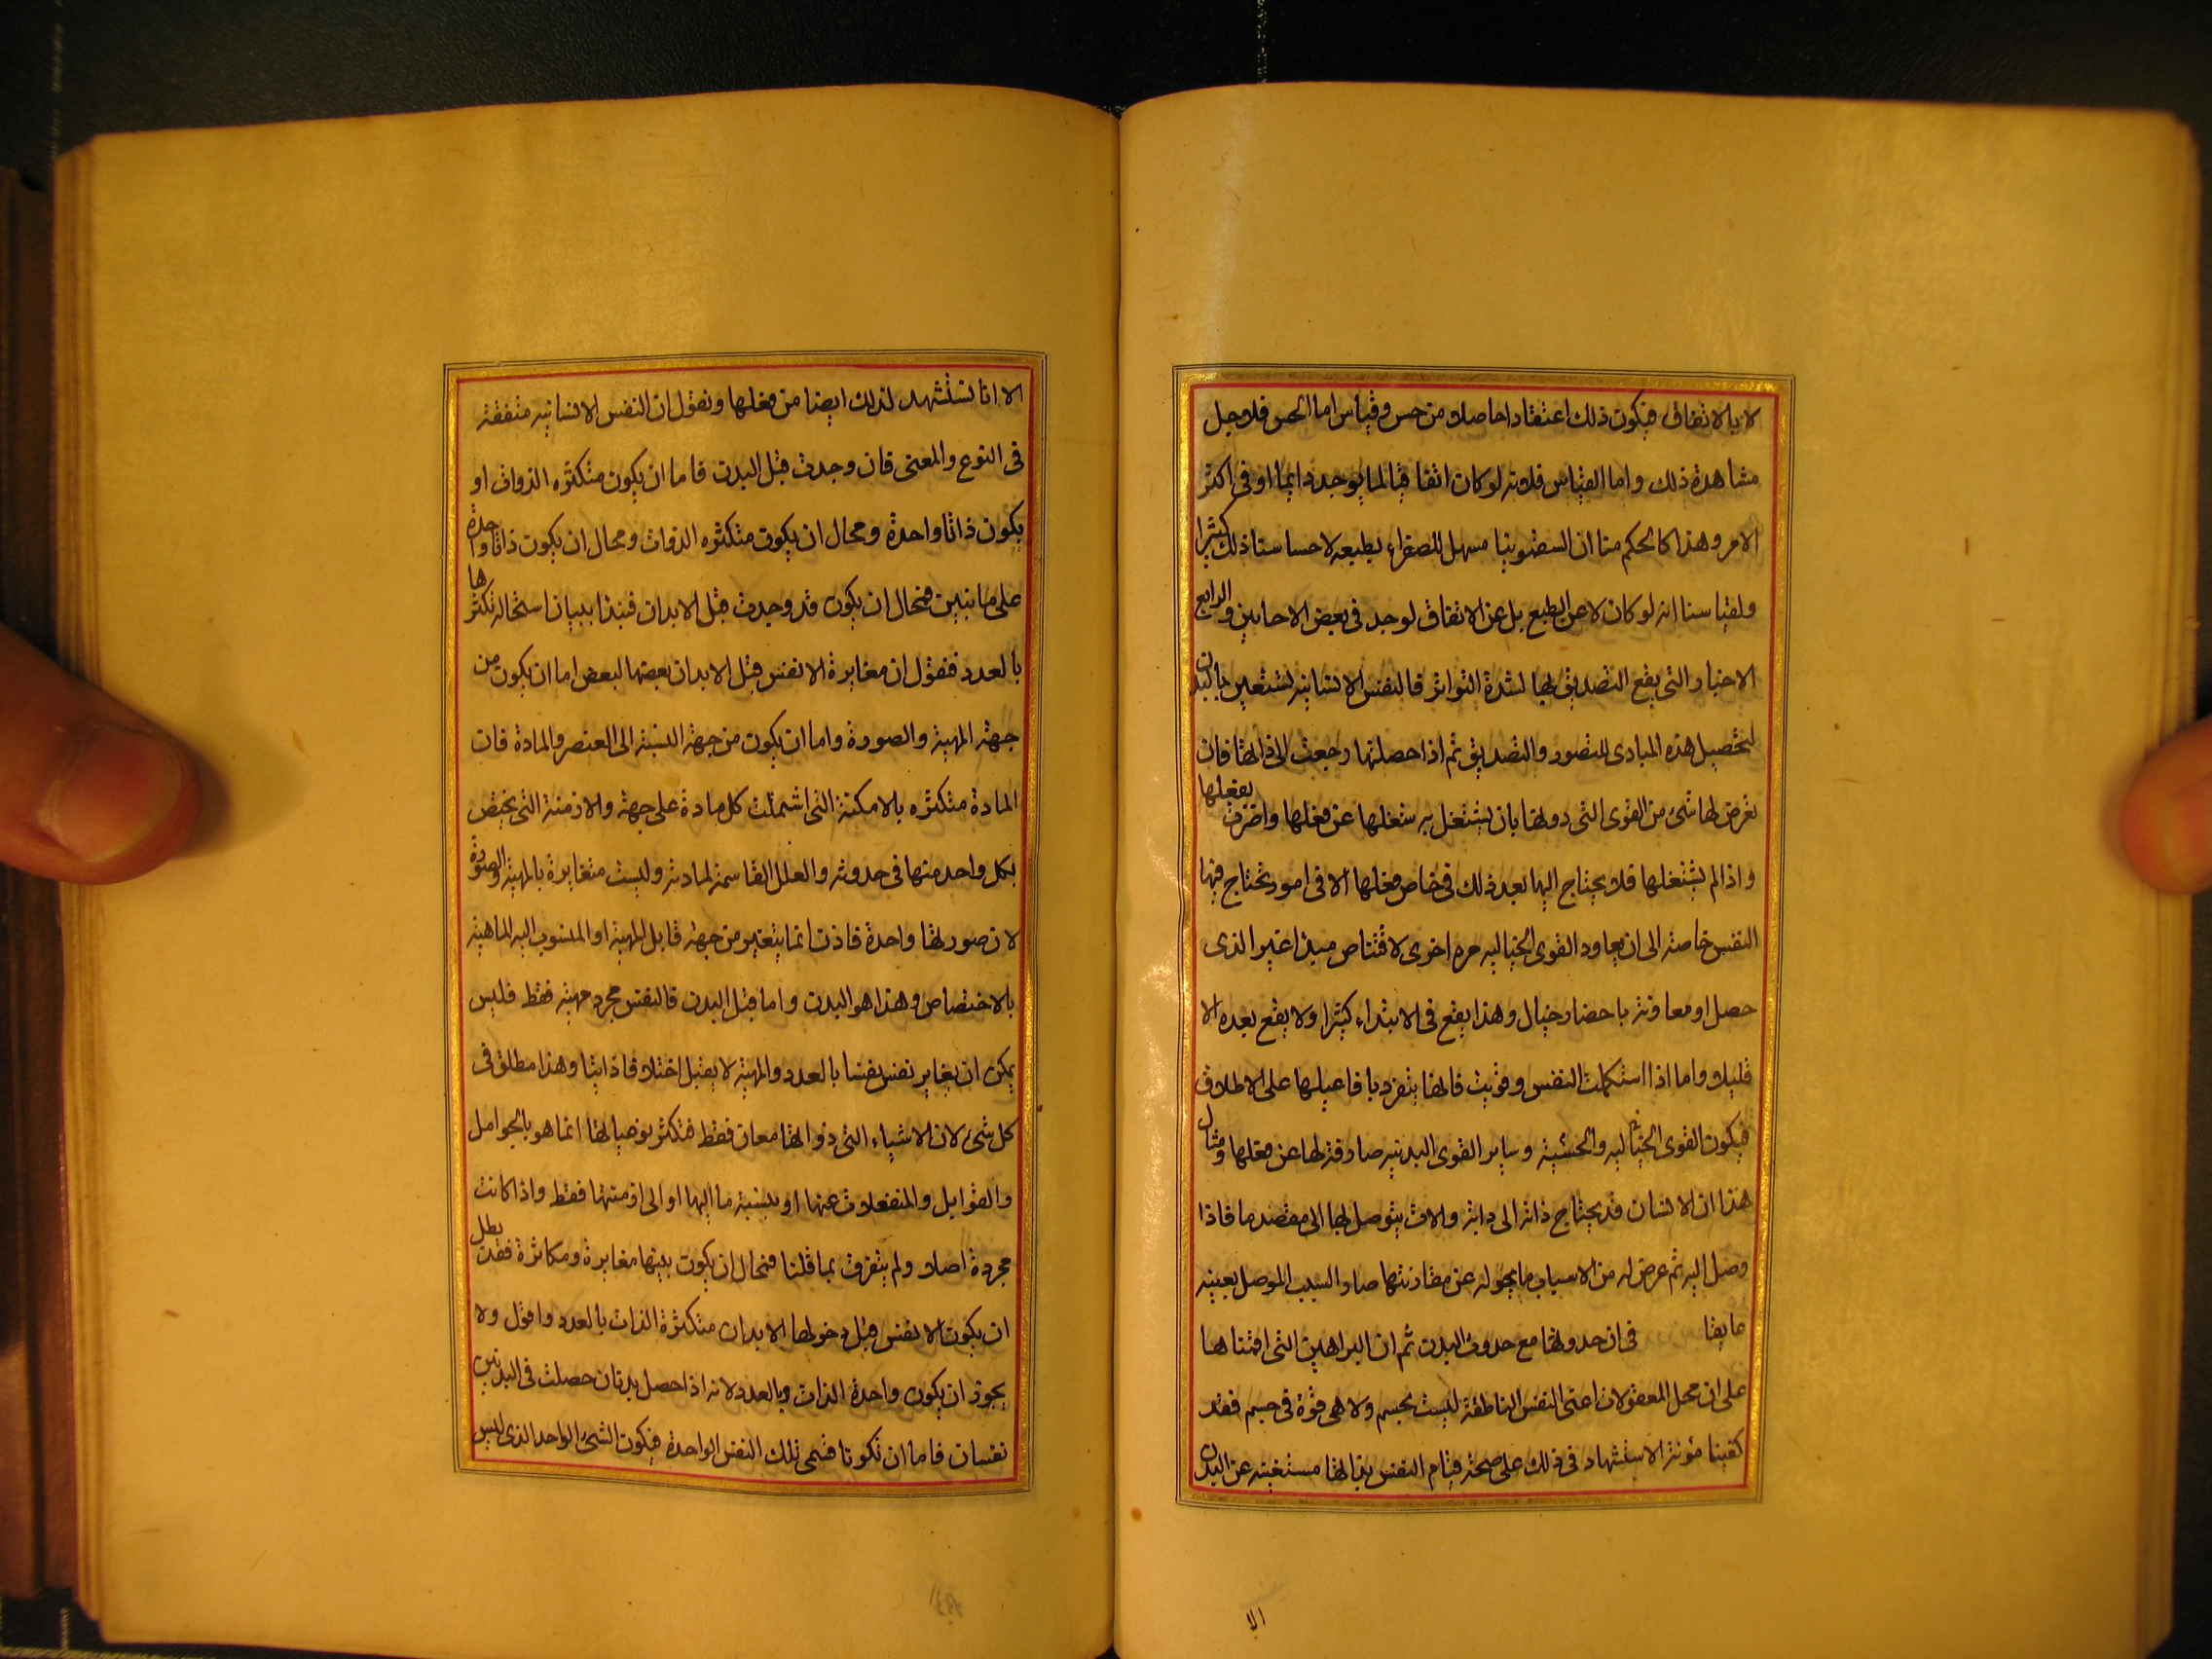 لا بالاتفاق فيكون ذلك اعتقادا حاصلا من حس وقياس اما الحس فلاجل
مشاهدة ذلك واما القياس فلانه لو كان اتفاقيا لما يوجد دايما او فى اكثر
الامر وهذا كالحكم منا ان السقمونيا مسهل للصفراء بطبعه لاحساسنا ذلك كثيرا
ولقياسنا انه لو كان لا عن الطبع بل عن الاتفاق لوجد فى بعض الاحايين والرابع
الاخبار التى يقع التصديق بها لشدة التواتر فالنفس الانسانيه تستعين بالبدن
لتحصيل هذه المبادى للتصور والتصديق ثم اذا حصلتها رجعت الى ذاتها فان
تعرض لها شئ من القوى التى دونها بان يشتغل به شغلها عن فعلها واضرت بفعلها
واذا لم يشغلها فلا يحتاج اليها بعد ذلك فى خاص فعلها الا فى امور تحتاج فيها
النفس خاصة الى ان يعاود القوى الخياليه مره اخرى لاقتناص مبدا غير الذى
حصل او معاونة باحضار خيال وهذا يقع فى الابتداء كثيرا ولا يقع بعده الا
قليلا واما اذا استكملت النفس وقويت فانها يتفرد بافاعيلها على الاطلاق
فيكون القوى الخياليه والحسية وساير القوى البدنيه صارفة لها عن فعلها ومثال
هذا ان الانسان قد يحتاج ذاته الى دابة والات يتوصل بها الى مقصد ما فاذا
وصل اليه ثم عرض له من الاسباب ما يحوله عن مفارقتها صار السبب الموصل بعينه
عايقا فى ان حدوثها مع حدوث البدن ثم ان البراهين التى اقمناها
على ان محل المعقولات اعنى النفس الناطقة ليست بجسم ولا هى قوة فى جسم فقد
كفينا مؤنة الاستشهاد فى ذلك على صحة قيام النفس بذاتها مستغنيه عن البدن
الا
الا انا نستشهد لذلك ايضا من فعلها ونقول ان النفس الانسانيه متفقة
فى النوع والمعنى فان وجدت قبل البدن فاما ان يكون متكثره الذوات او
يكون ذاتا واحدة ومحال ان يكون متكثره الذوات ومحال ان يكون ذاتا واحدة
على ما نبين فمحال ان يكون قد وجدت قبل الابدان فنبدا ببيان استحاله تكثرها
بالعدد فنقول ان مغايرة الانفس قبل الابدان بعضها لبعض اما ان يكون من
جهة المهية والصورة واما ان يكون من جهة النسبة الى العنصر والمادة فان
المادة متكثره بالامكنة التى اشتملت كل مادة على جهة والازمنة التى يختص
بكل واحد منها فى حدوثه والعلل القاسمة لمادته وليست متغايرة بالمهية والصورة
لان صورتها واحدة فاذن انما يتغير من جهة قابل المهية او المنسوب اليه الماهية
بالاختصاص وهذا هو البدن واما قبل البدن فالنفس مجرد مهية فقط فليس
يمكن ان يغاير نفس نفسا بالعدد والمهية لا يقبل اختلافا ذاتيا وهذا مطلق فى
كل شئ لان الاشياء التى ذواتها معان فقط فتكثر نوعياتها انما هو بالحوامل
والقوابل والمنفعلات عنها او بنسبة ما اليها او الى ازمنتها فقط واذا كانت
مجردة اصلا ولم يتفرق بما قلنا فمحال ان يكون بينها مغايرة ومكاثرة فقد بطل
ان يكون الانفس قبل دخولها الابدان متكثرة الذات بالعدد واقول ولا
يجوز ان يكون واحدة الذات وبالعدد لانه اذا حصل بدنان حصلت فى البدنين
نفسان فاما ان تكونا قسمى تلك النفس الواحدة فيكون الشئ الواحد الذى ليس